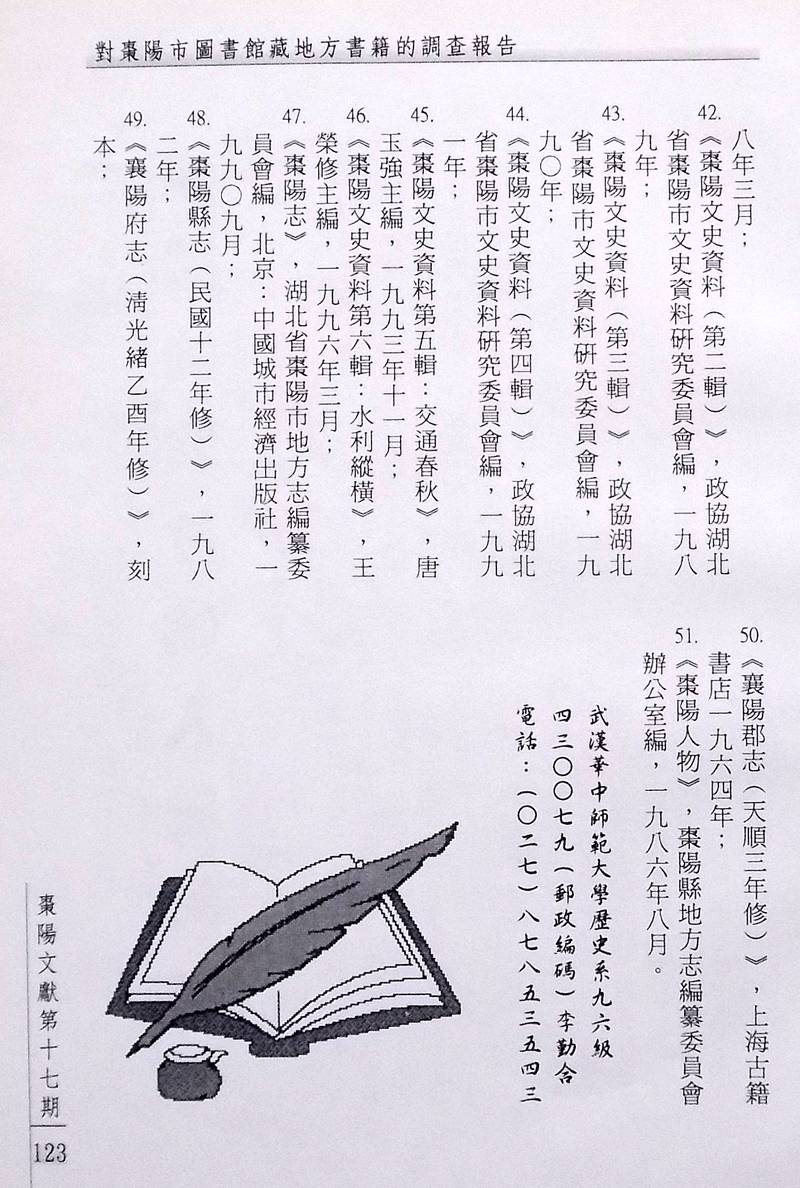 對棗陽市圖書館藏地方書籍的調查報告
八年三月；
42.《棗陽文史資料（第二輯）》，政協湖北
省棗陽市文史資料研究委員會編，一九八
九年；
43.《棗陽文史資料（第三輯）》，政協湖北
省棗陽市文史資料研究委員會編，一九
九〇年；
44.《棗陽文史資料（第四輯）》，政協湖北
省棗陽市文史資料研究委員會編，一九九
一年；
45.《棗陽文史資料第五輯：交通春秋》，唐
玉強主編，一九九三年十一月；
46.《棗陽文史資料第六輯：水利縱橫》，王
榮修主編，一九九六年三月；
47.《棗陽志》，湖北省棗陽市地方志編纂委
員會編，北京：中國城市經濟出版社，一
九九〇九月；
48.《棗陽縣志（民國十二年修）》，一九八
二年；
49.《襄陽府志（清光緒乙酉年修）》，刻
本：
50.《襄陽郡志（天順三年修）》，上海古籍
書店一九六四年；
51.《棗陽人物》，棗陽縣地方志編纂委員會
辦公室編，一九八六年八月。
武漢華中師範大學歷史系九六級
四三〇〇七九（郵政編碼）李勤合
電話：（〇二七）八七八五三五四三
棗陽文獻第十七期
123